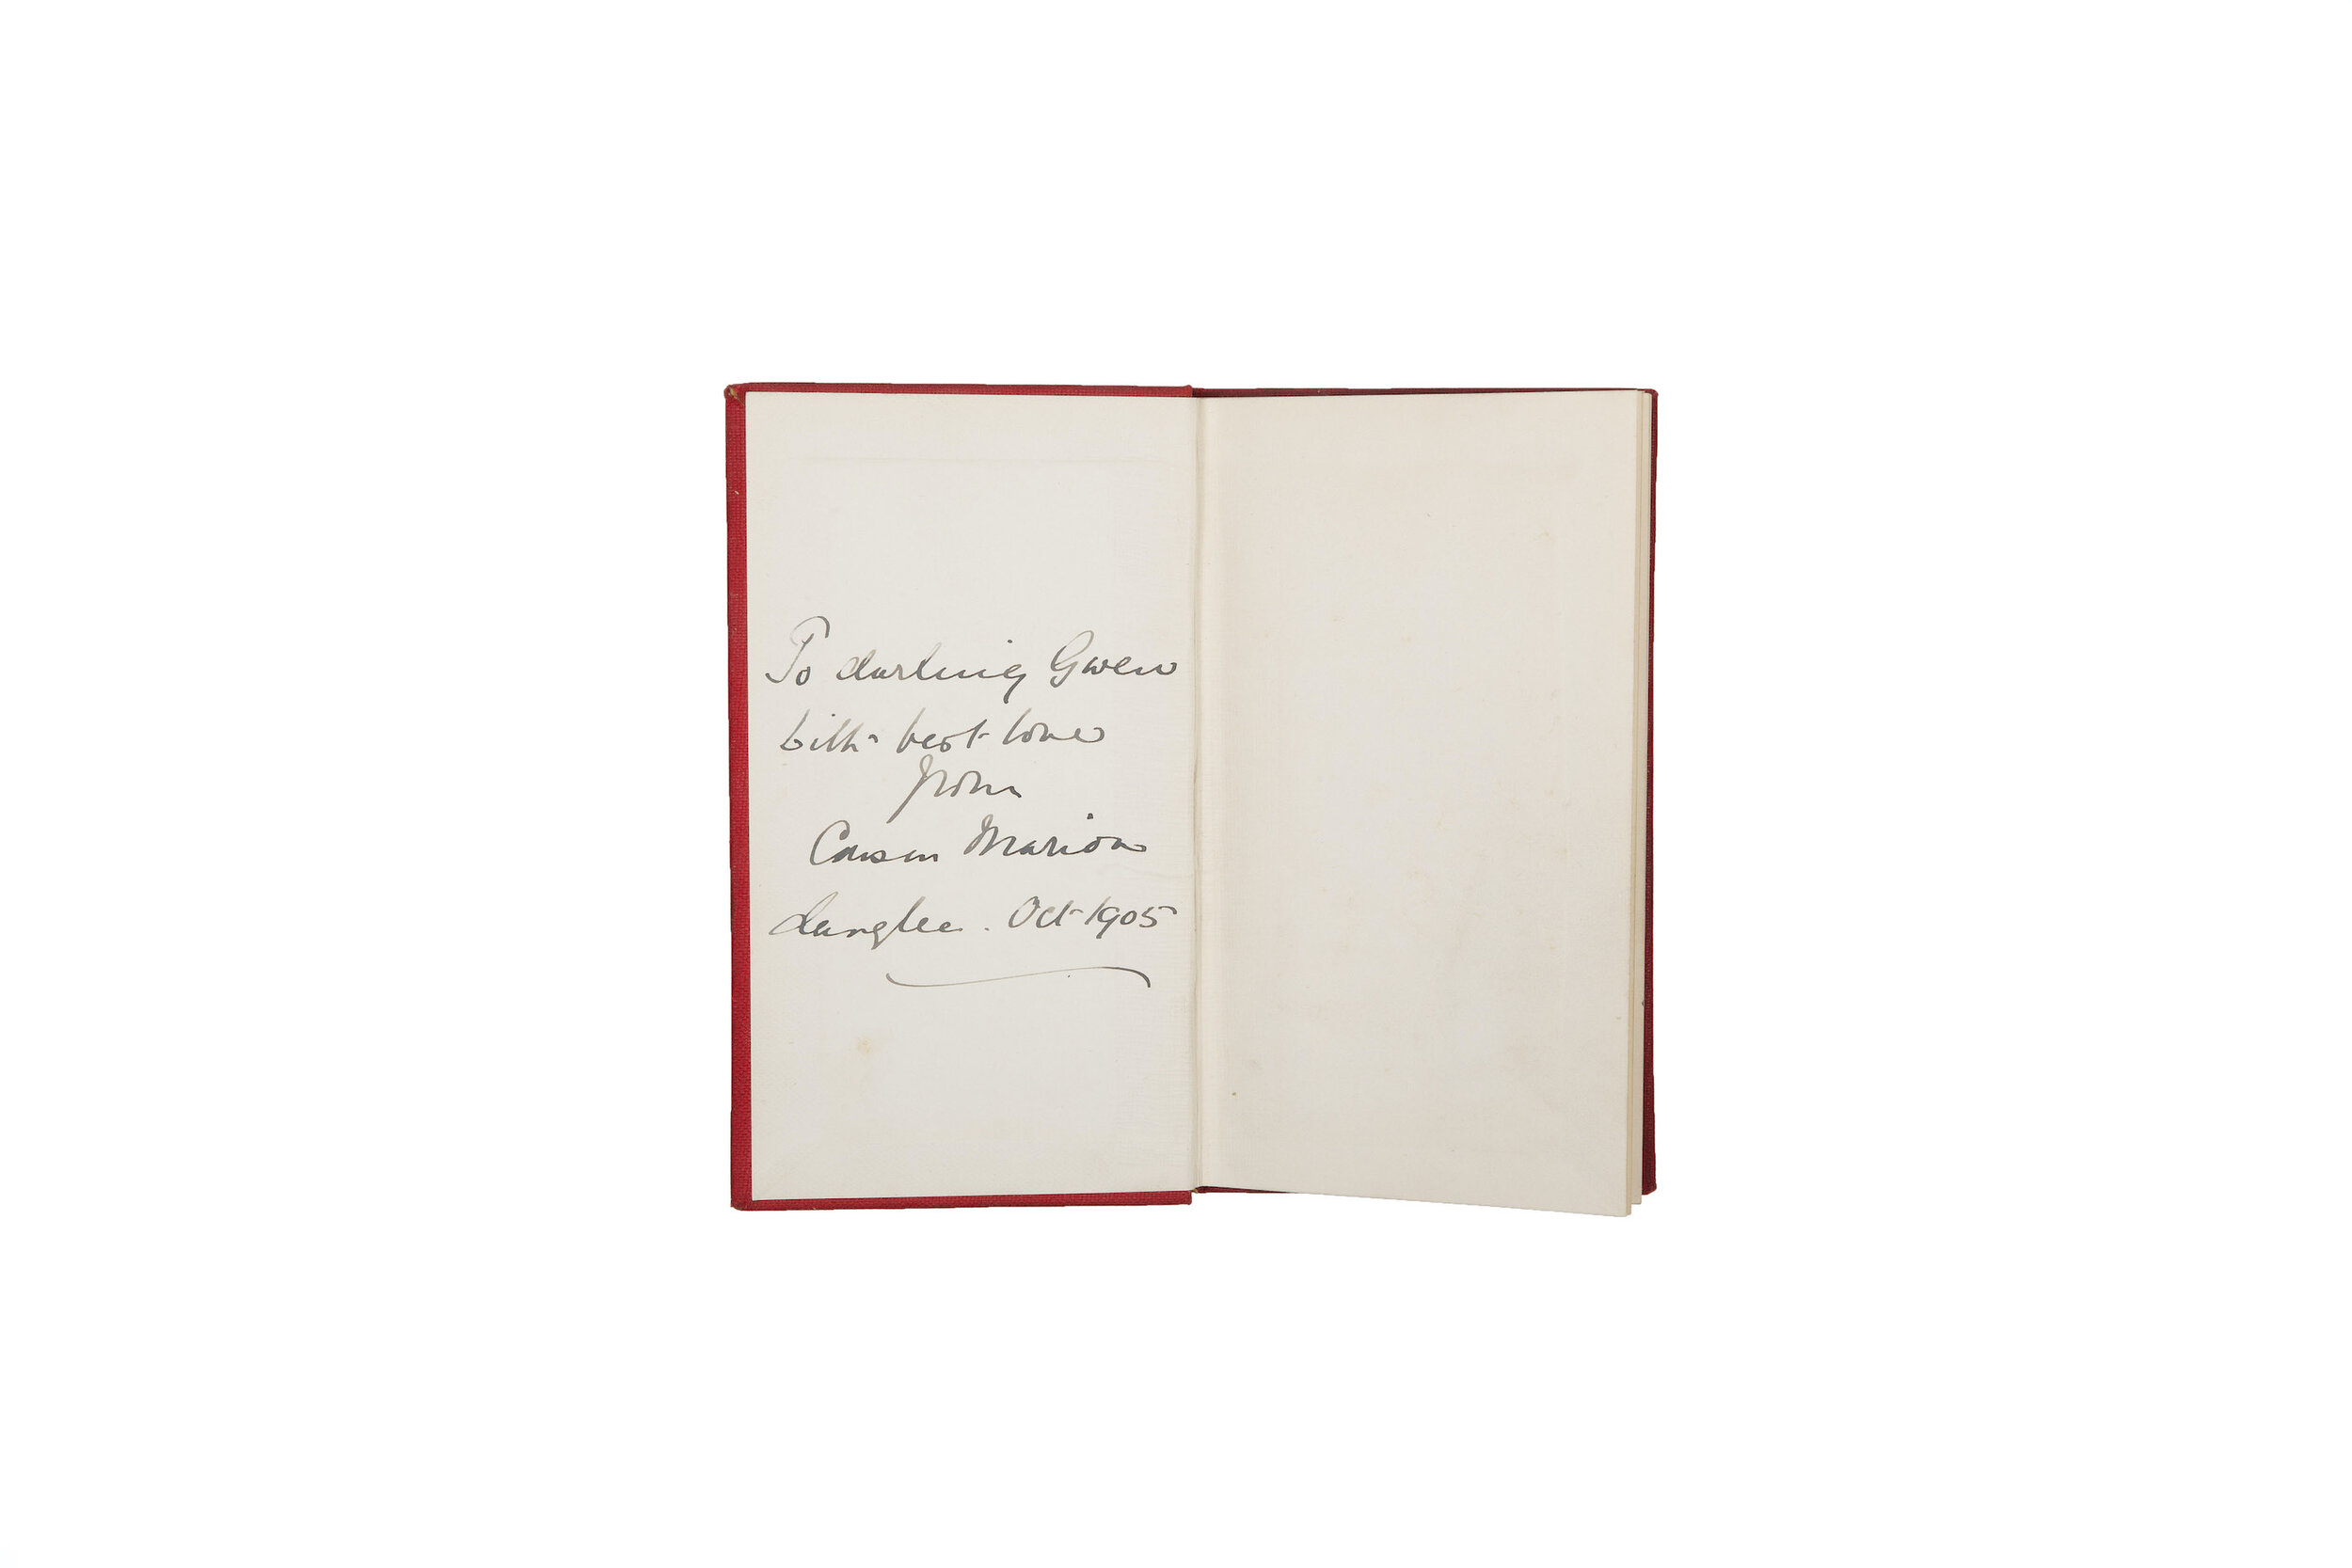 To darling Gwen
With best love
from
Cousin Marion
Langlee. Oct 1905